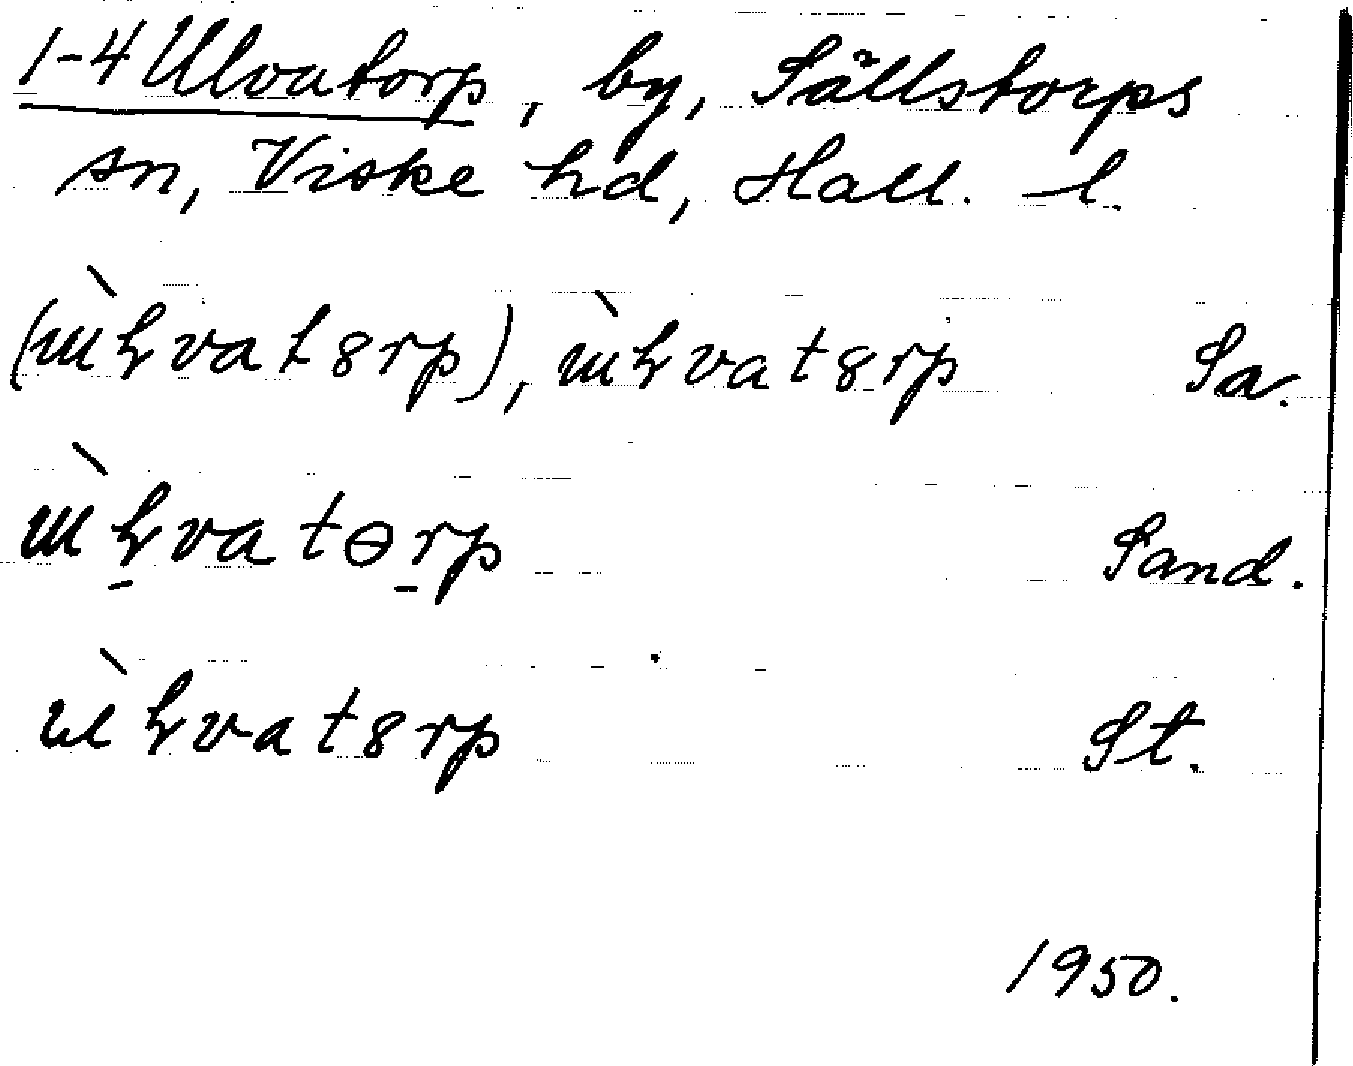 1-4 Ulvatorp, by, Sällstorps
sn, Viske hd, Hall. l.
(ɯ̀ꝇvat8rp), ɯ̀ꝇvat8rp Sa.
ɯ̀ꝇvatɵrp Sand.
ùꝇvat8rp St.
1950.